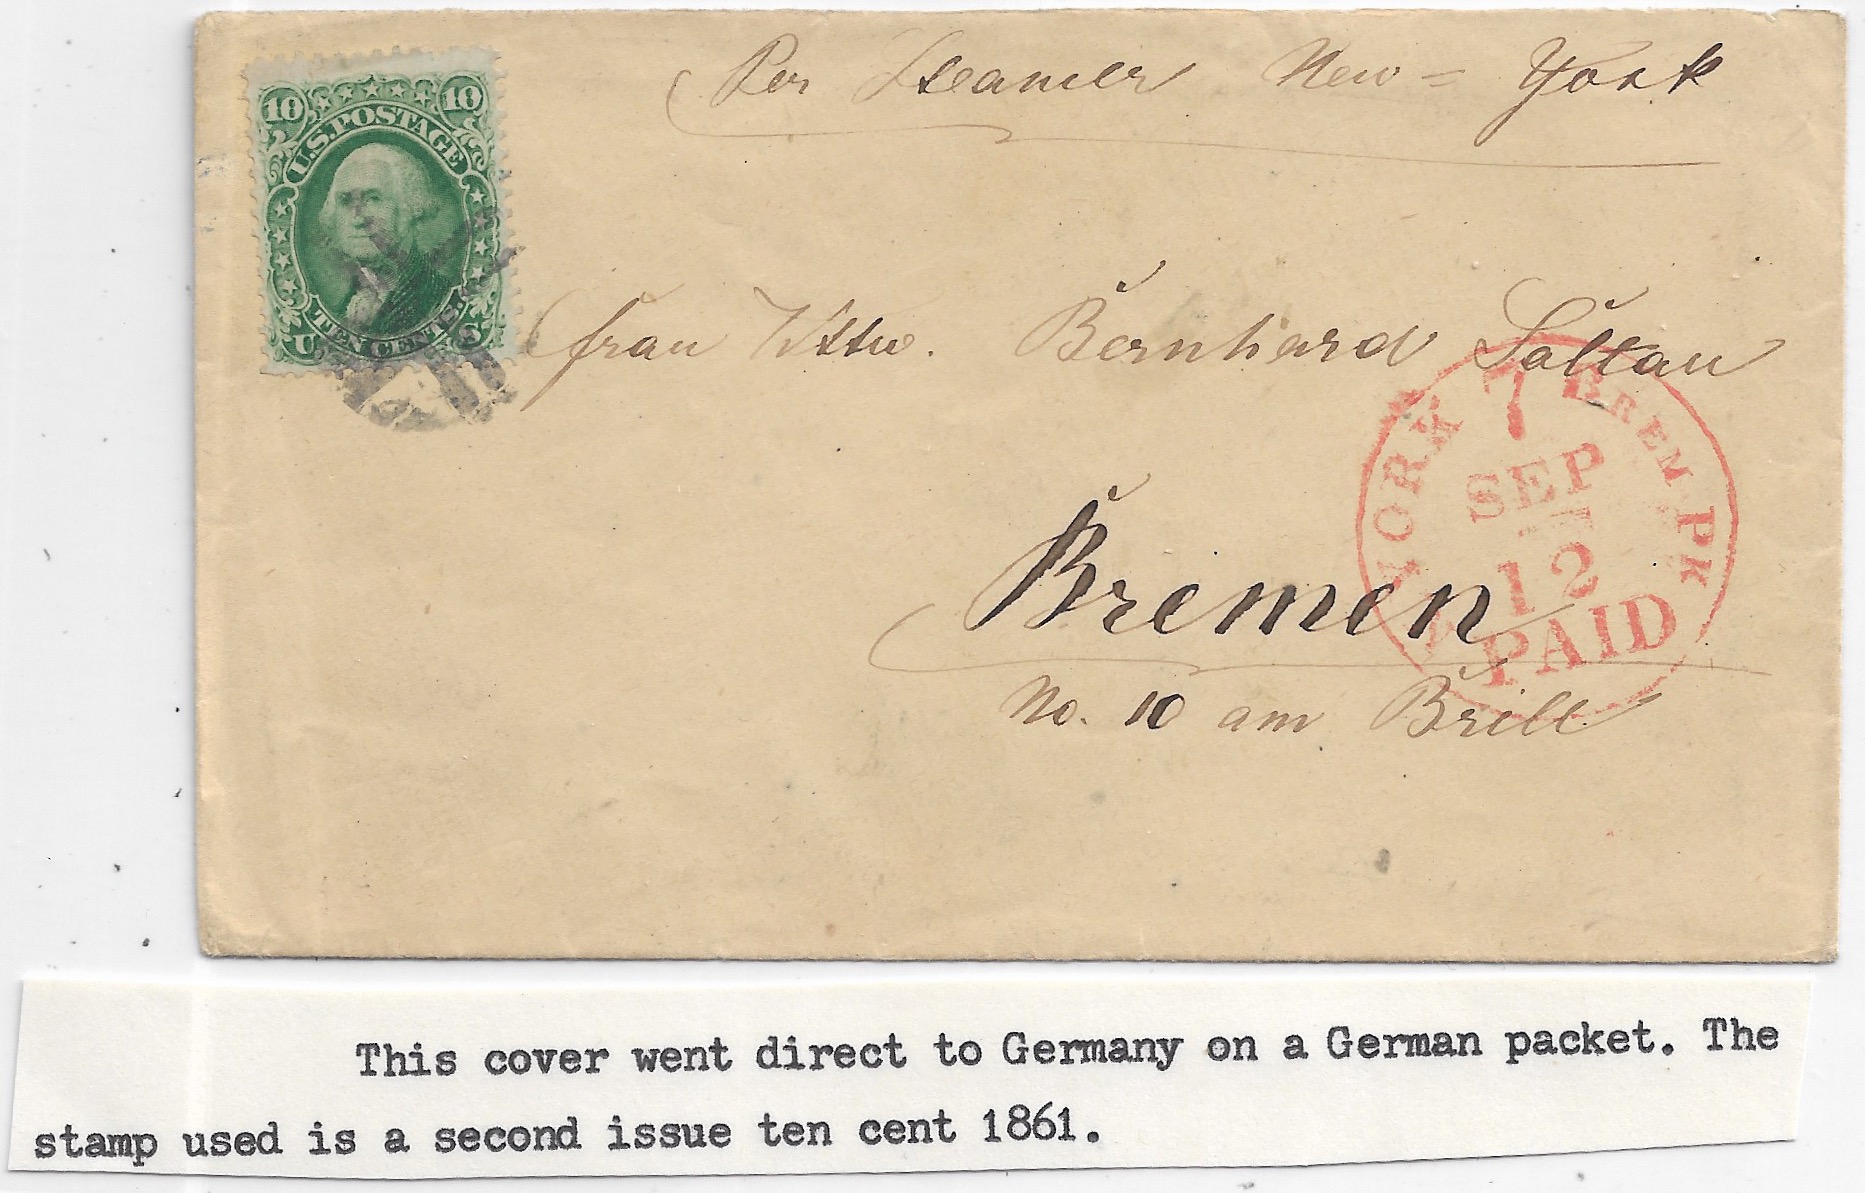 Per Steamer New=York
10 10
U.S. POSTAGE
TEN CENTS.
U S
frau Wttw. Bernhard Saltau
YORK 7 BREM PK
SEP
12
PAID
Bremen
No. 10 am Brill
This cover went direct to Germany on a German packet. The
stamp used is a second issue ten cent 1861.